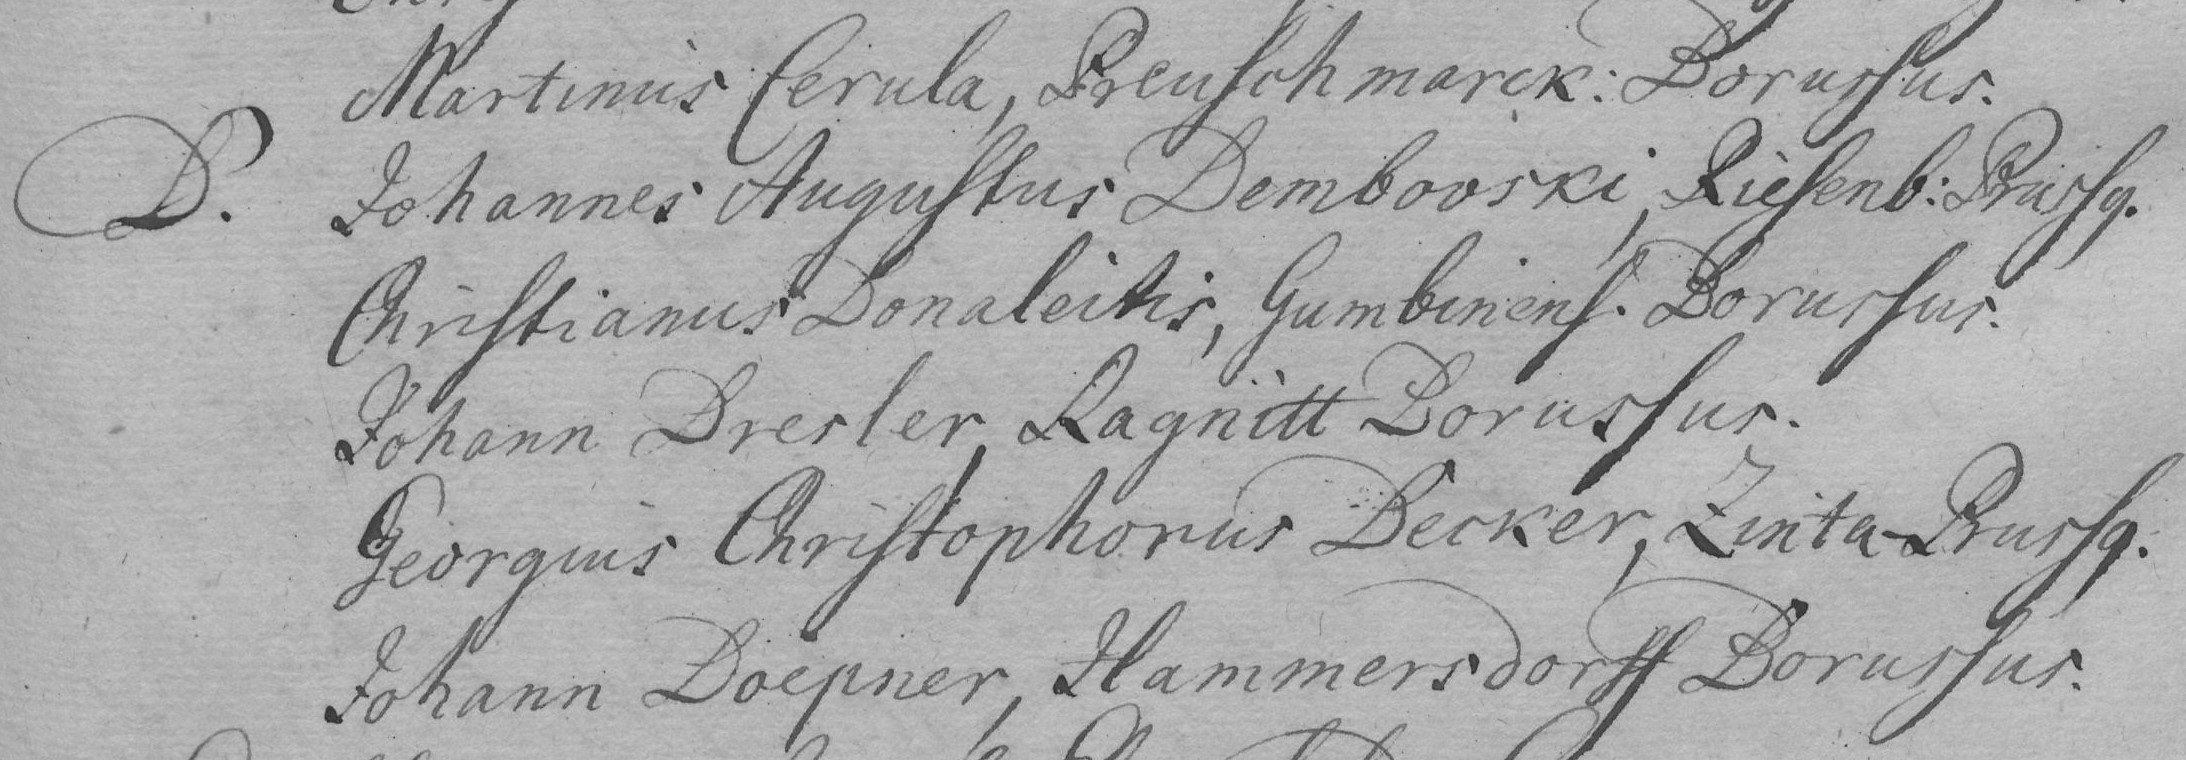 Martinus Cerula, Preuschmarck: Borussus.
D. Johannes Augustus Dembovski, Riesenb: Prussq.
Christianus Donaleitis, Gumbinens. Borussus.
Johann Dresler, Ragnitt Borussus.
Georgius Christophorus Decker, Zinta-Prussq.
Johann Doepner, Hammersdorff Borussus.